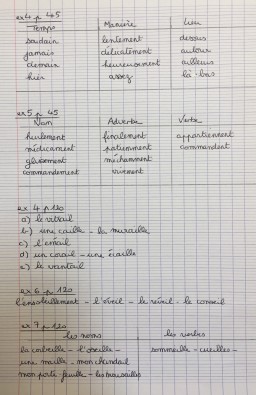 ex 4 p 45
Temps Manière Lieu
soudain lentement dessus
jamais délicatement autour
demain heureusement ailleurs
hier assez là-bas
ex 5 p 45
Nom Adverbe Verbe
hurlement finalement appartiennent
médicament patiemment commandent
glissement méchamment
commandement vivement
ex 4 p 120
a) le vitrail
b) une caille - la muraille
c) l'émail
d) un corail - une écaille
e) le vantail
ex 6 p 120
l'ensoleillement - l'éveil - le réveil - le conseil
ex 7 p 120
les noms les verbes
la corbeille - l'oseille - sommeille - cueilles -
une maille - mon chandail
mon porte feuille - les trouvailles